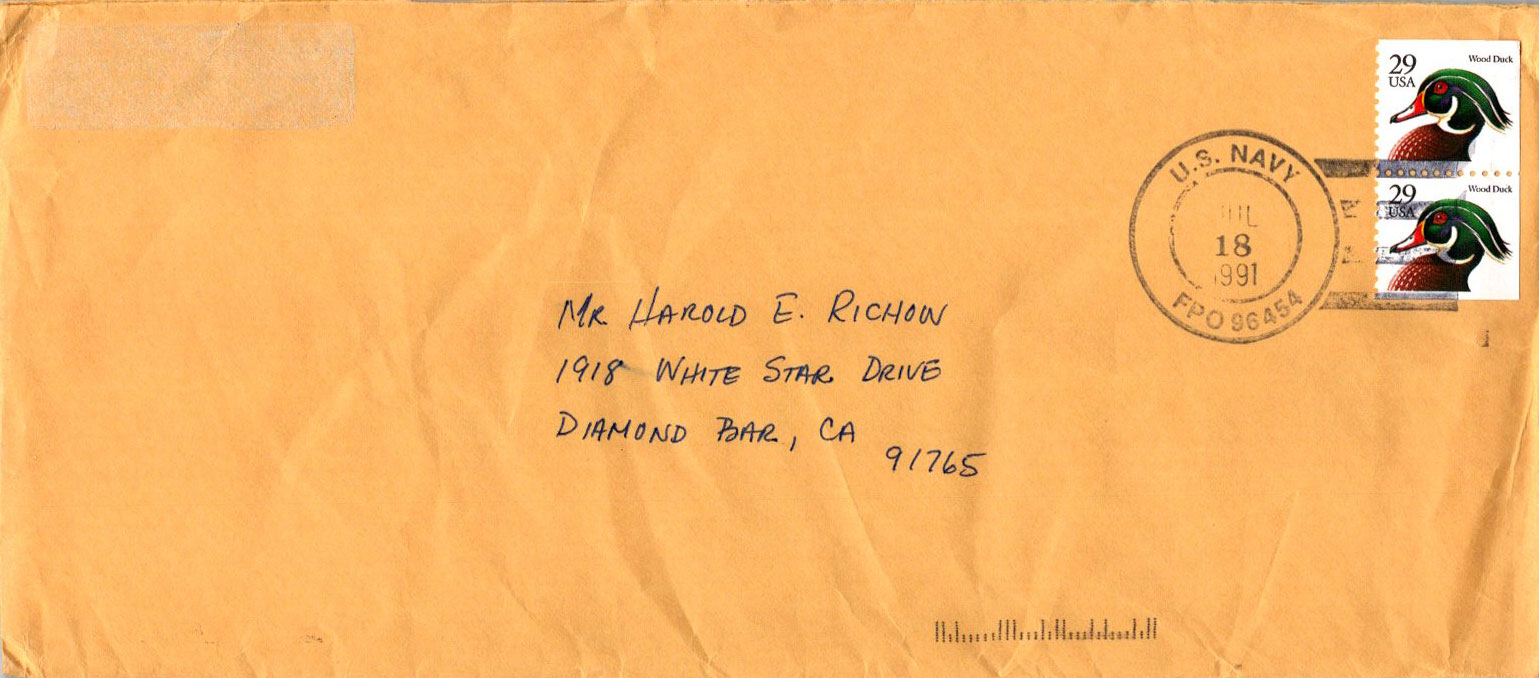 29
USA
Wood Duck
29
USA
Wood Duck
U.S. NAVY
JUL
18
1991
FPO 96454
MR HAROLD E. RICHOW
1918 WHITE STAR DRIVE
DIAMOND BAR, CA
91765